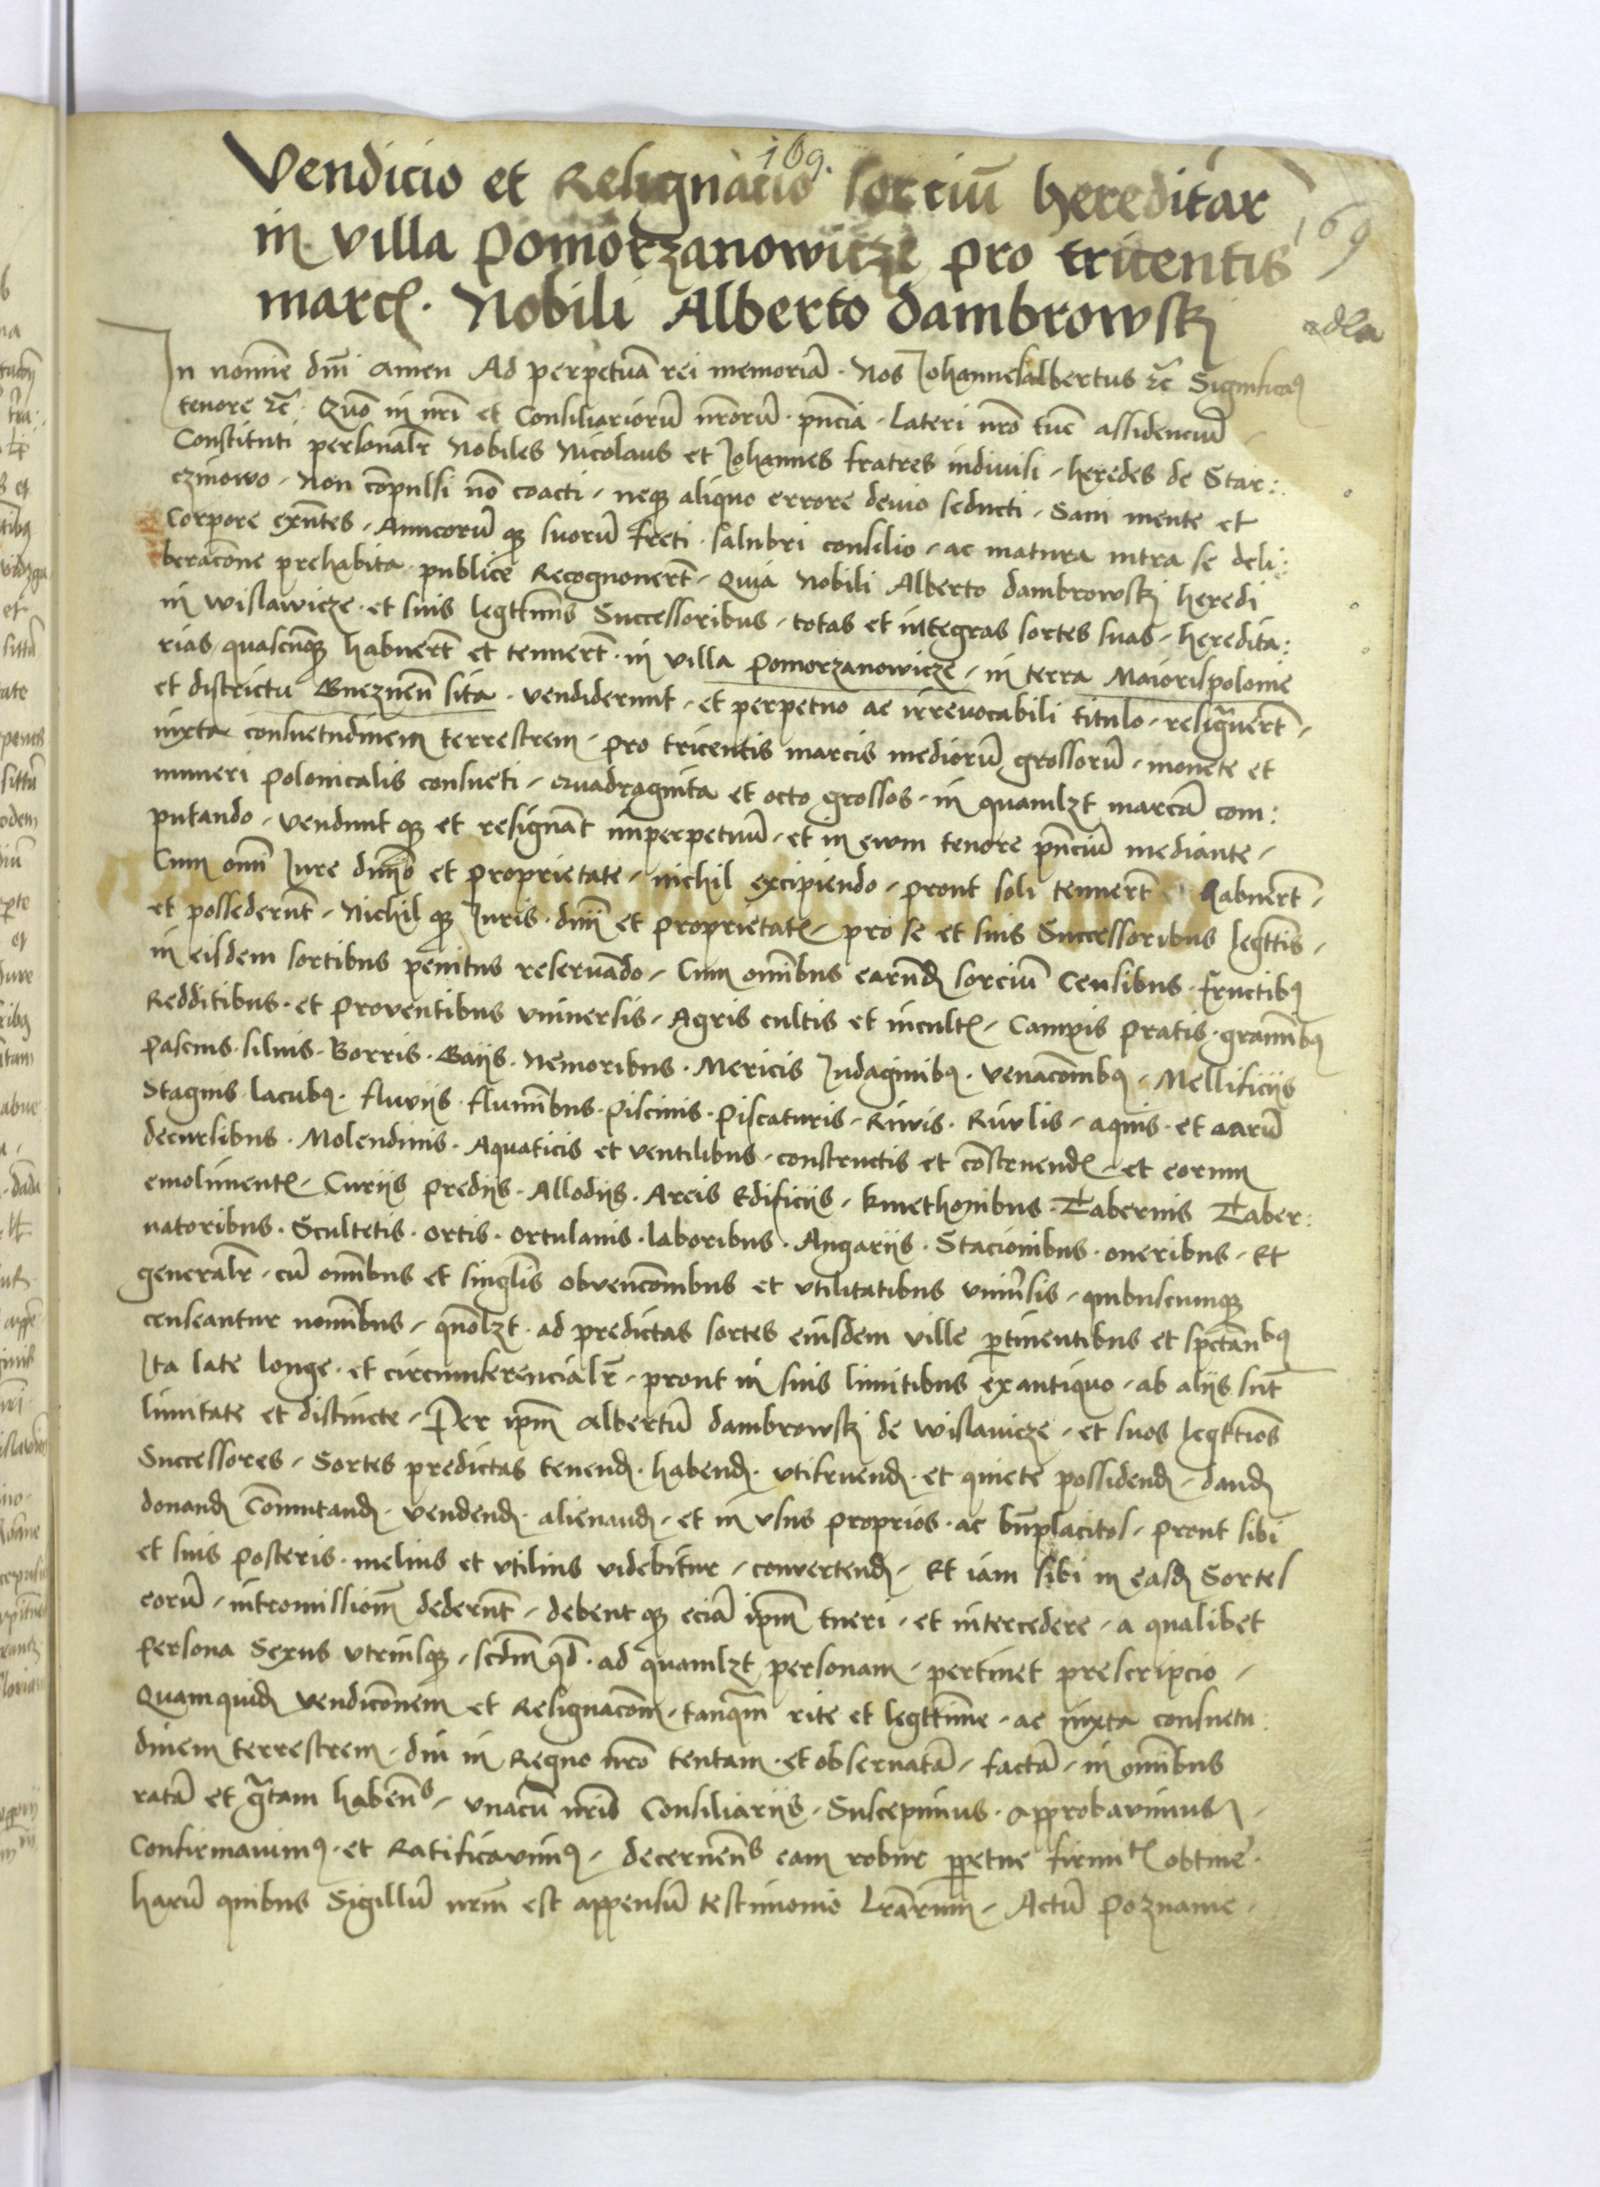 169.
Vendicio et Resignacio sorciu͞ hereditar
in villa Pomorzanowicze pro tricentis
marcꝭ. Nobili Alberto Dambrowskj
169
adla
In nomine dn͞i Amen Ad perpetua͞ rei memoria͞ · Nos Johannesalbertus ꝛc͞ Significaꝰ
tenore ꝛc͞ · Quo͞ in nr͞i et Consiliarioru͞ nr͞oru͞ · pn͞cia · Lateri nr͞o tu͞c assidenciu͞
Constituti personal͞r Nobiles Nicolaus et Johannes fratres indiuisi · heredes de Star:
czinowo · Non co͞pulsi no͞ coacti · neqꝫ aliquo errore deuio seducti · Sani mente et
Corpore exn͞tes · Amicoru͞ qꝫ suoru͞ freti · salubri consilio · ac matura intra se deli:
beraco͞ne prehabita publice Recognouer͞t · Quia Nobili Alberto Dambrowskj heredi
in Wislawicze · et suis legtti͞mis Successoribus · totas et integras sortes suas · heredita:
rias quascu͞nqꝫ habuer͞t et tenuer͞t · in villa Pomorzanowicze · in terra Maiorispolonie
et districtu Gneznen͞ sita · vendiderunt · et perpetuo ac irreuocabili titulo · resig͞uer͞t ·
iuxta consuetudinem terrestrem · pro tricentis marcis medioru͞ grossoru͞ · monete et
numeri Polonicalis consueti · Quadraginta et octo grossos · in quamlꝫt marca͞ com:
putando · Vendunt qꝫ et resigna͞t imperpetuu͞ · et in ewm tenore pn͞ciu͞ mediante ·
Cum omn͞i Jure dn͞io et proprietate · nichil excipiendo · prout soli tenuer͞t habuer͞t ·
et possederu͞t · Nichil qꝫ Juris · dn͞ii et proprietatꝭ · pro se et suis Successoribus legtti͞s ·
in eisdem sortibus penitus reserua͞do · Cum omn͞ibus earu͞dꝫ sorciu͞ Censibus · fructibꝰ
Redditibus · et Prouentibus vniuersis · Agris cultis et incultꝭ · Campis Pratis · gramn͞ibꝰ
Pascuis · siluis · Borris · Gaiis · Nemoribus · Mericis Indaginibꝰ · venaco͞nibꝰ · Mellificiis
Stagnis lacubꝰ · fluviis flumi͞bus · Piscinis · Piscaturis · Riuis · Riuulis · aquis · et aaru͞
decursibus · Molendinis · Aquaticis et ventilibus · constructis et co͞struendꝭ · et eorum
emolimentꝭ · Curiis prediis · Allodiis · Areis Edificiis · kmethonibus · Tabernis Taber:
natoribus · Scultetis · ortis · ortulanis · laboribus · Angariis · Stacionibus · oneribus · Et
general͞r · cu͞ omn͞ibus et singlis͞ obvenco͞nibus et vtilitatibus vniu͞sis · quibuscumqꝫ
censeantur nomi͞bus · quo͞lꝫt · ad predictas sortes eiusdem ville ꝑtinentibus et spcta͞nbꝰ
Ita late longe · et circumferencial͞r · prout in suis limitibus exantiquo · ab aliis su͞t
limitate et distincte · Per ip͞m Albertu͞ Dambrowskj de Wislauicze · et suos legttio͞s
Successores · Sortes predictas tenendꝫ · habendꝫ · vtifruendꝫ · et quiete possidendꝫ · dandꝫ
donandꝫ co͞mutandꝫ · vendendꝫ · alienandꝫ · et in vsus proprios · ac bn͞placitos · prout sibi
et suis posteris · melius et vtilius videbitur · conuertendꝫ · Et iam sibi in easdꝫ Sortes
eoru͞ · intromission͞e dederu͞t · debent qꝫ ecia͞ ip͞m tueri · et intercedere · a qualibet
Persona Sexus vtriusqꝫ · scdm͞ qd͞ · ad quamlꝫt personam · pertinet prescripcio ·
Quamquidꝫ vendico͞nem et Resignaco͞em · tanqua͞m rite et legttime · ac iuxta consuetu:
dinem terrestrem · diu in Regno nr͞o tentam · et obseruata͞ · facta͞ · in omn͞ibus
rata͞ et gr͞tam haben͞s · vnacu͞ nr͞is Consiliariis · Suscepimus · approbauimus ·
Confirmauimꝰ · et Ratificauimꝰ · decernen͞s eam robur ꝑpetue firmitꝭ obtine͞ ·
haru͞ quibus Sigillu͞ nr͞m est appensu͞ testimonio Lr͞arum · Actu͞ Poznanie ·